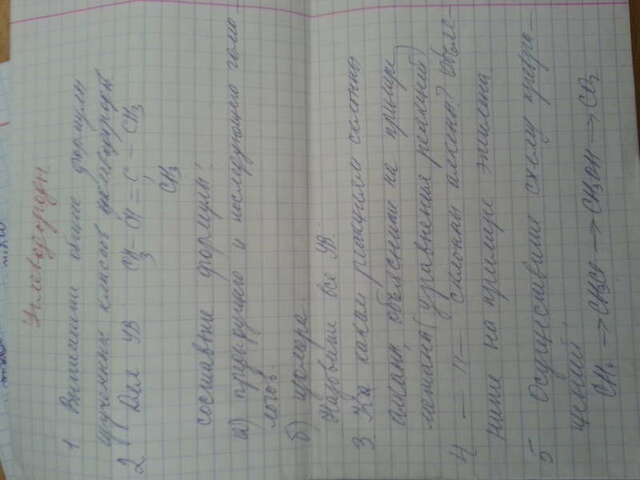 Углеводороды
1 Напишите общие формулы
изученных классов углеводородов
2 Для УВ CH3 – CH = C – CH3
CH3
составьте формулы:
а) предыдущего и последующего гомо-
логов.
б) изомера.
Назовите все УВ.
3 На какие реакции склонны
алканы, объясните на примере
метана (уравнения реакций)
4 — " — склонны алкены? Объяс-
ните на примере этилена
5 Осуществите схему превра-
щений
CH4 → CH3Cl → CH3OH → CO2